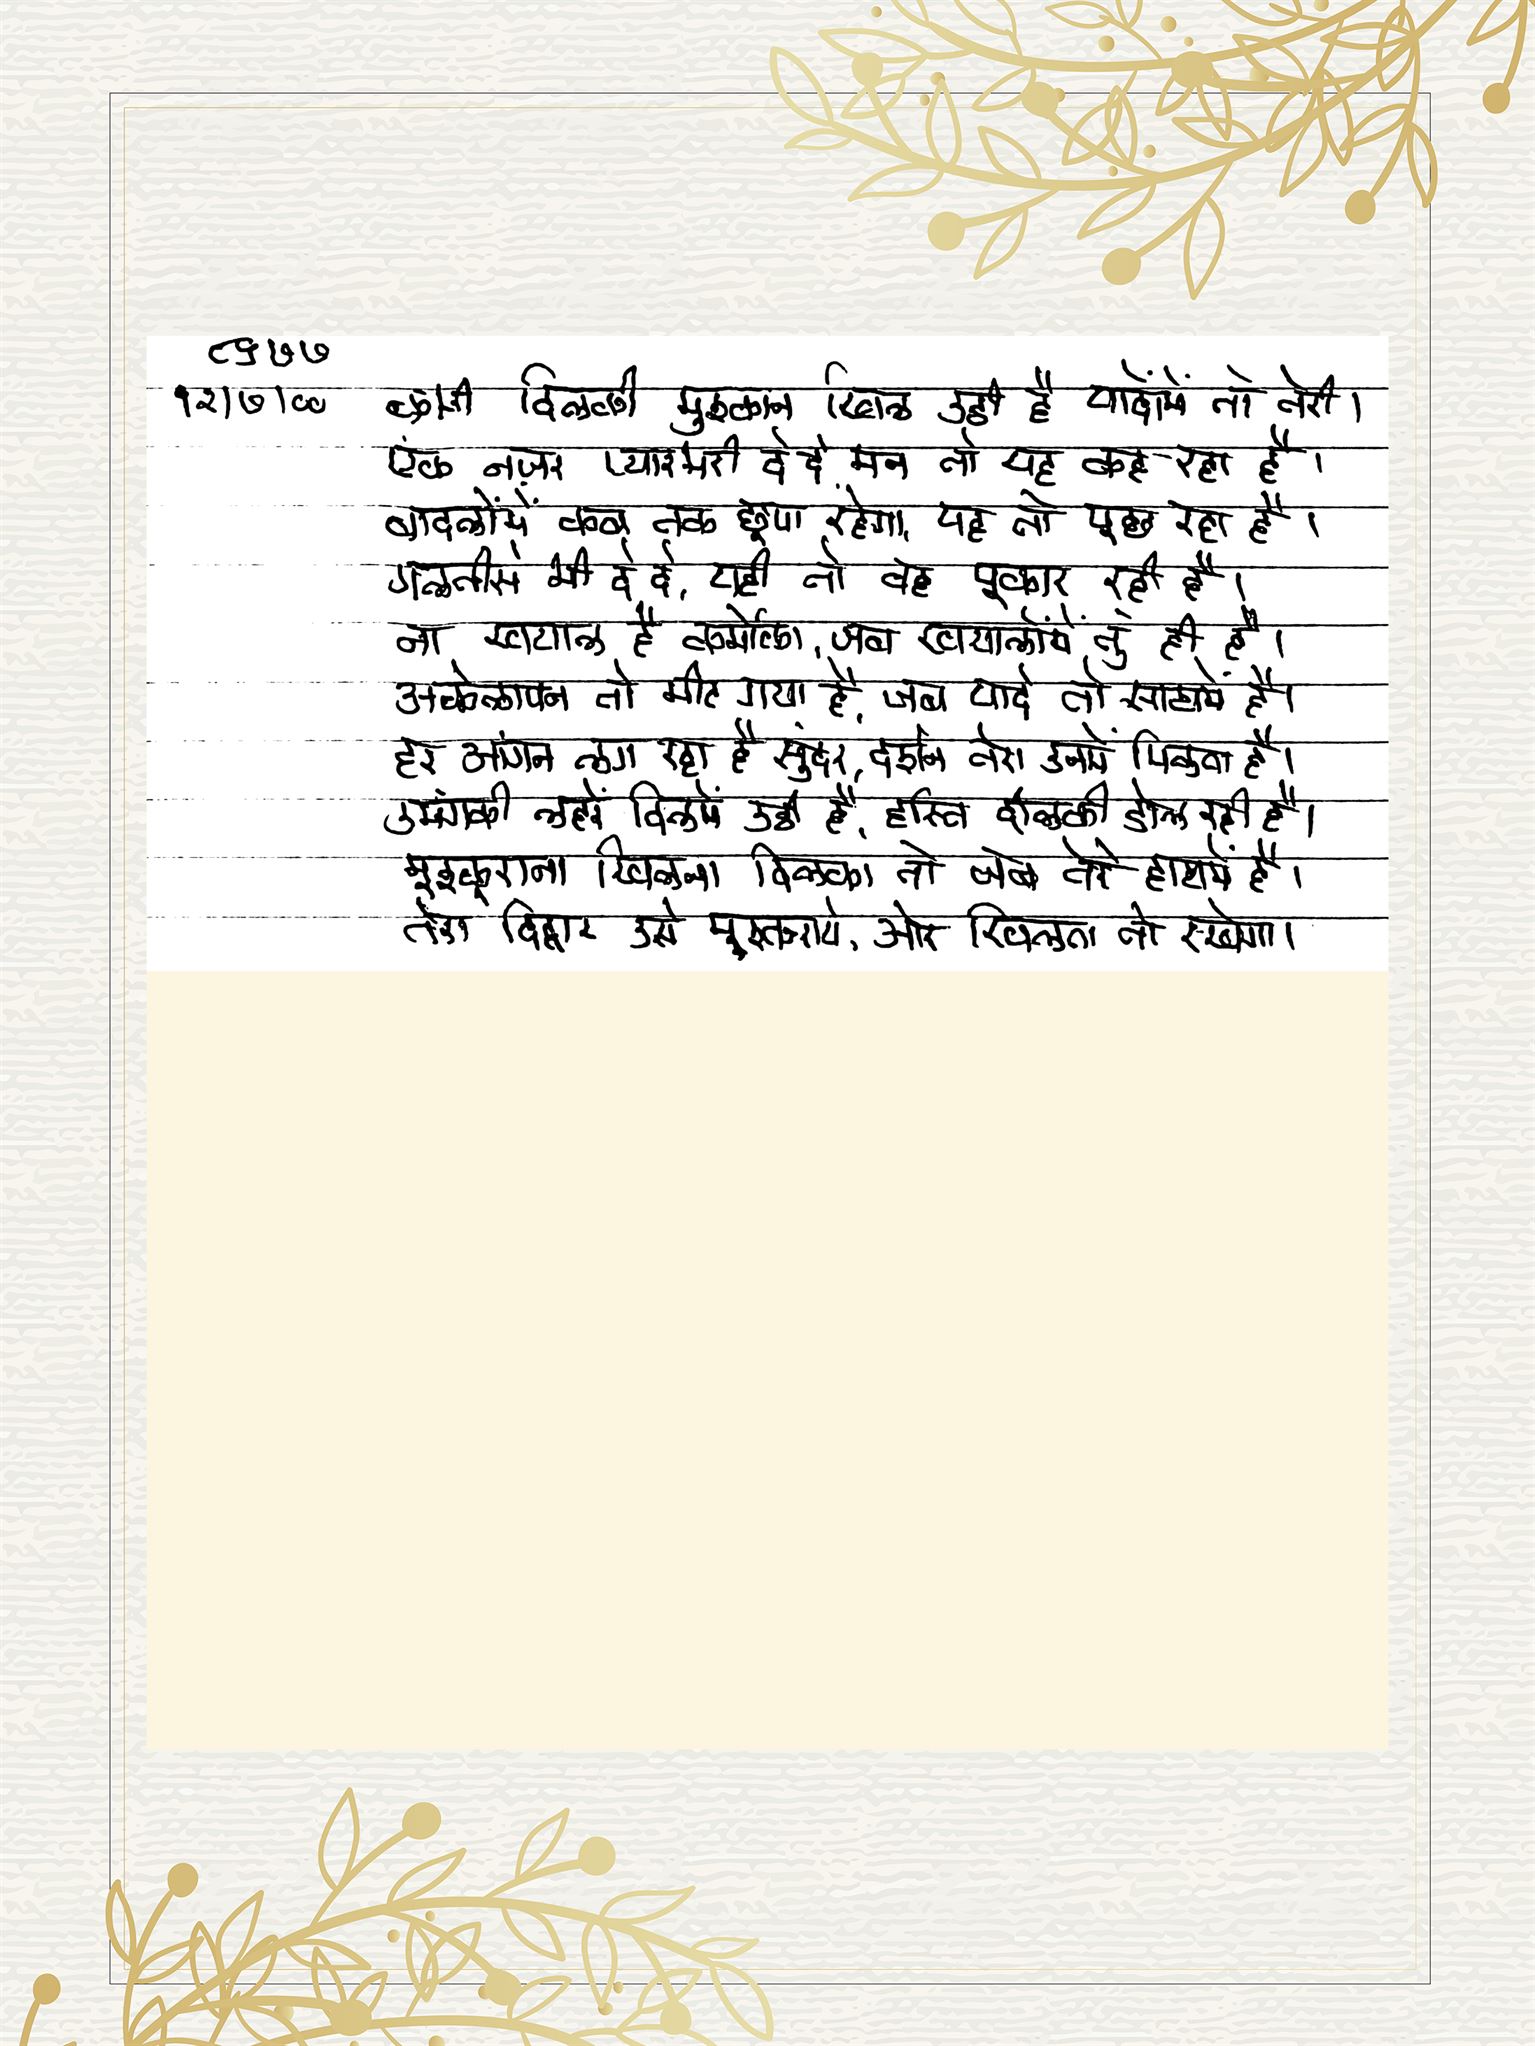 ८९७७
१२|७|००
दिलकी मुश्कान खिल उठी है यादोंमें तो तेरी।
एंक नज़र प्यारभरी दे दे, मन तो यह कह रहा है।
बादलोंमें कब तक छूपा रहेगा, यह तो पूछ रहा है।
गलतीसे भी दे दे, यही तो वह पूकार रही है।
ना खयाल है कर्मोका, जब खयालोंमें तुं ही है।
अकेलापन तो मीट गया है, जब यादे तो साथमें है।
हर आंगन लग रहा है सुंदर, दर्शन तेरा उनमें मिलता है।
उमंगकी लहरें दिलमें उठी है, हस्ति दीलकी डोल रही है।
मूश्कूराना खिलना दिलका तो जब तेरे हाथमें है।
तेरा दिदार उसे मूस्कराये, और खिलता तो रखेगा।